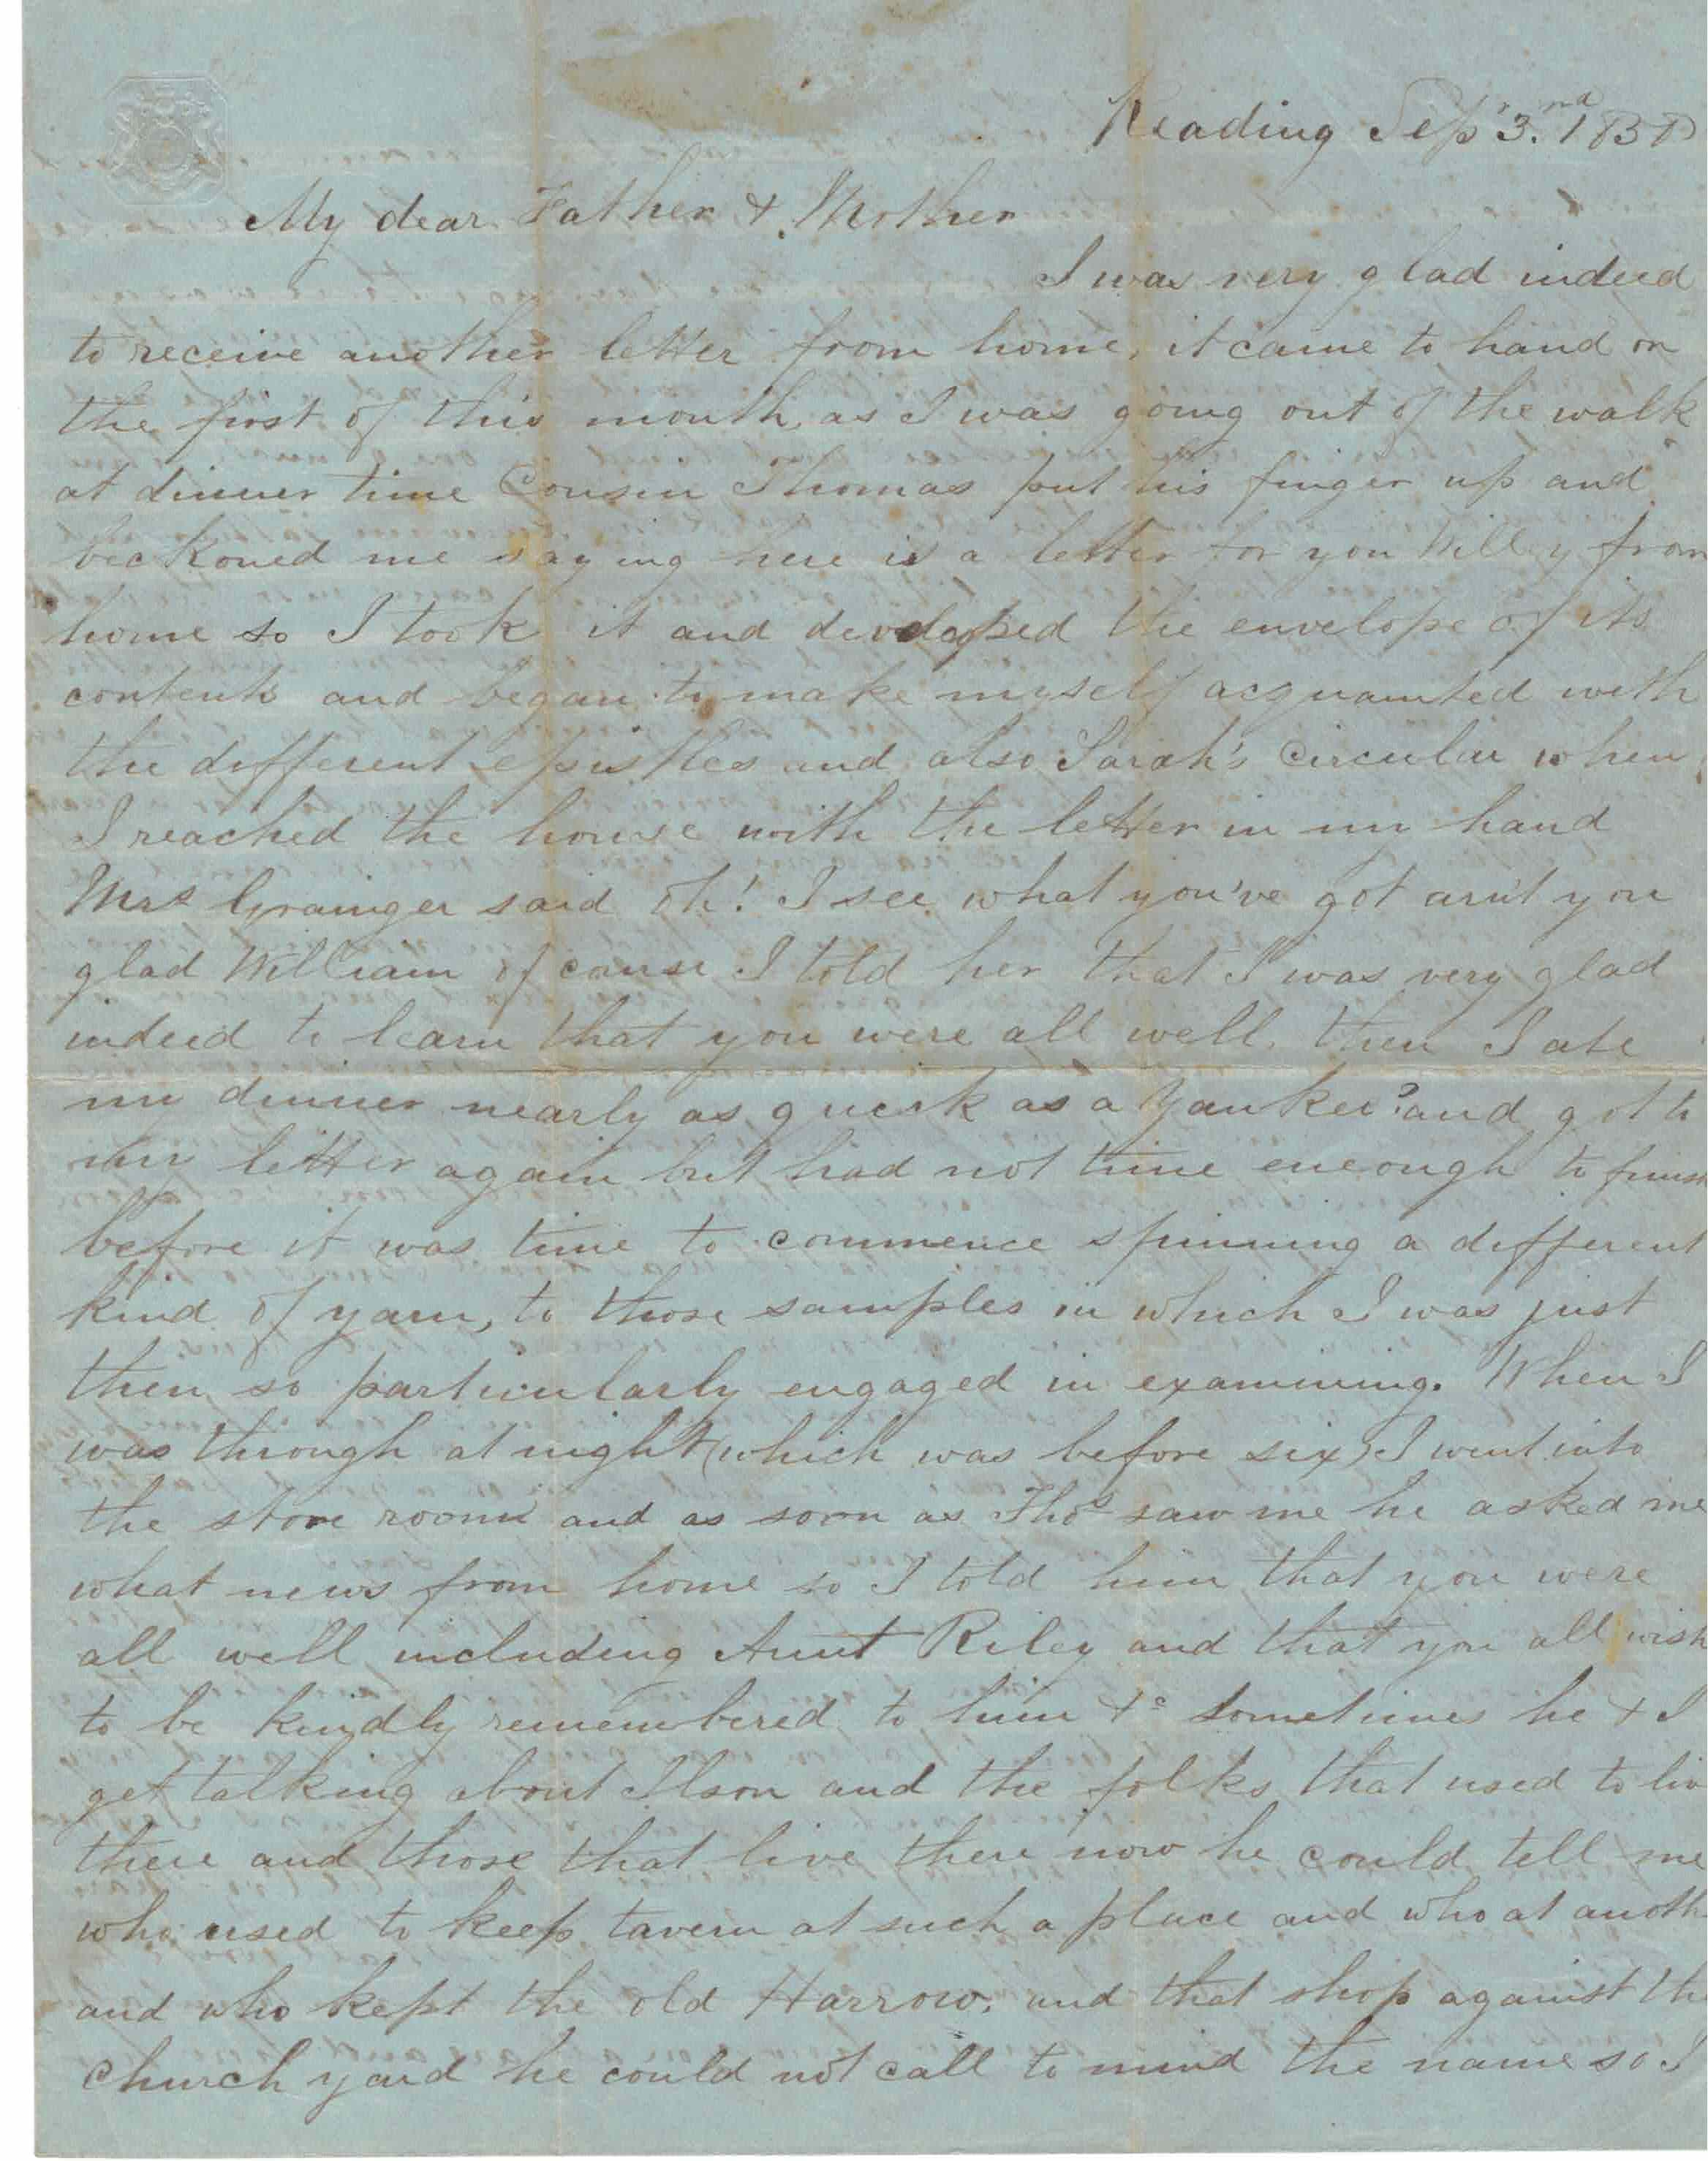 Reading Sepr 3.nd 1858
My dear Father & Mother
I was very glad indeed
to receive another letter from home, it came to hand on
the first of this month, as I was going out of the walk
at dinner time Cousin Thomas put his finger up and
beckoned me saying here is a letter for you Willy from
home so I took it and developed the envelope of its
contents and began to make myself acquainted with
the different epistles and also Sarah's Circular when
I reached the house with the letter in my hand
Mrs Grainger said Oh! I see what you've got arn't you
glad William of cause I told her that I was very glad
indeed to learn that you were all well, then I ate
my dinner nearly as quick as a Yankee? and got to
my letter again but had not time eneough to finish
before it was time to commence spinning a different
kind of yarn, to those samples in which I was just
then so particularly engaged in examining. When I
was through at night (which was before six) I went into
the store room and as soon as Thos saw me he asked me
what news from home so I told him that you were
all well including Aunt Riley and that you all wish
to be kindly remembered to him &c sometimes he & I
get talking about Ilson and the folks that used to liv
there and those that live there now he could tell me
who used to keep tavern at such a place and who at anoth
and who kept the old Harrow. and that shop against the
church yard he could not call to mind the name so I